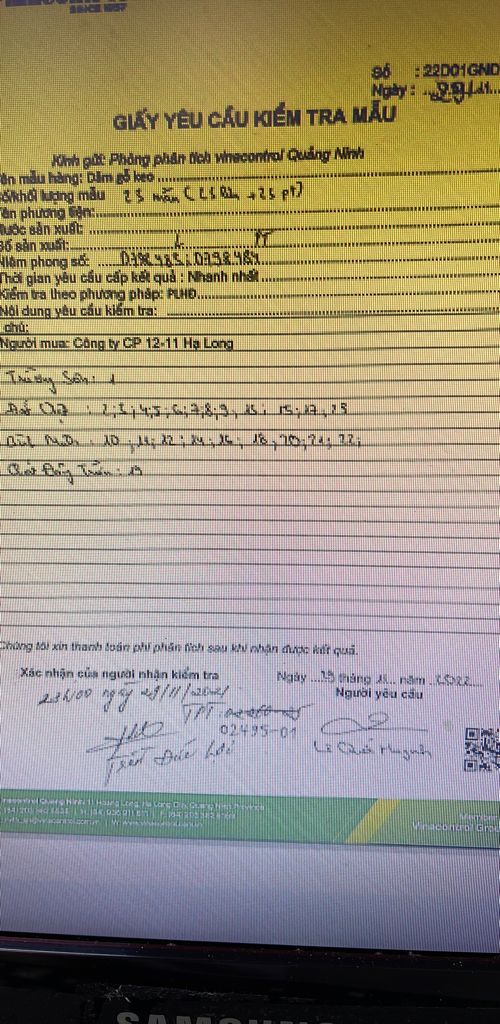 SINCE 1957
Số : 22D01GND
Ngày : ...29/11...
GIẤY YÊU CẦU KIỂM TRA MẪU
Kính gửi: Phòng phân tích vinacontrol Quảng Ninh
ên mẫu hàng: Dăm gỗ keo
ố/khối lượng mẫu 23 mẫu
ên phương tiện:
ước sản xuất:
Số sản xuất:
Niêm phong số: 0798485; 0798484
Thời gian yêu cầu cấp kết quả : Nhanh nhất
Kiểm tra theo phương pháp: PLHĐ
Nội dung yêu cầu kiểm tra:
chú:
Người mua: Công ty CP 12-11 Hạ Long
Trường Sơn: 1
: 2; 3; 4; 5; 6; 7; 8; 9, 13; 15; 17, 23
: 10, 11; 12; 14, 16; 18, 20, 21, 22;
: 19
Chúng tôi xin thanh toán phí phân tích sau khi nhận được kết quả.
Xác nhận của người nhận kiểm tra
Ngày ...29 tháng 11... năm ..2022....
Người yêu cầu
ngày 29/11/2021
TPT:
02495-01
Trần Đức
Lê Quốc Huynh
nacontrol Quang Ninh: 11 Hoang Long, Ha Long City, Quang Ninh Province
Member
Vinacontrol Grou
SAMSUNG